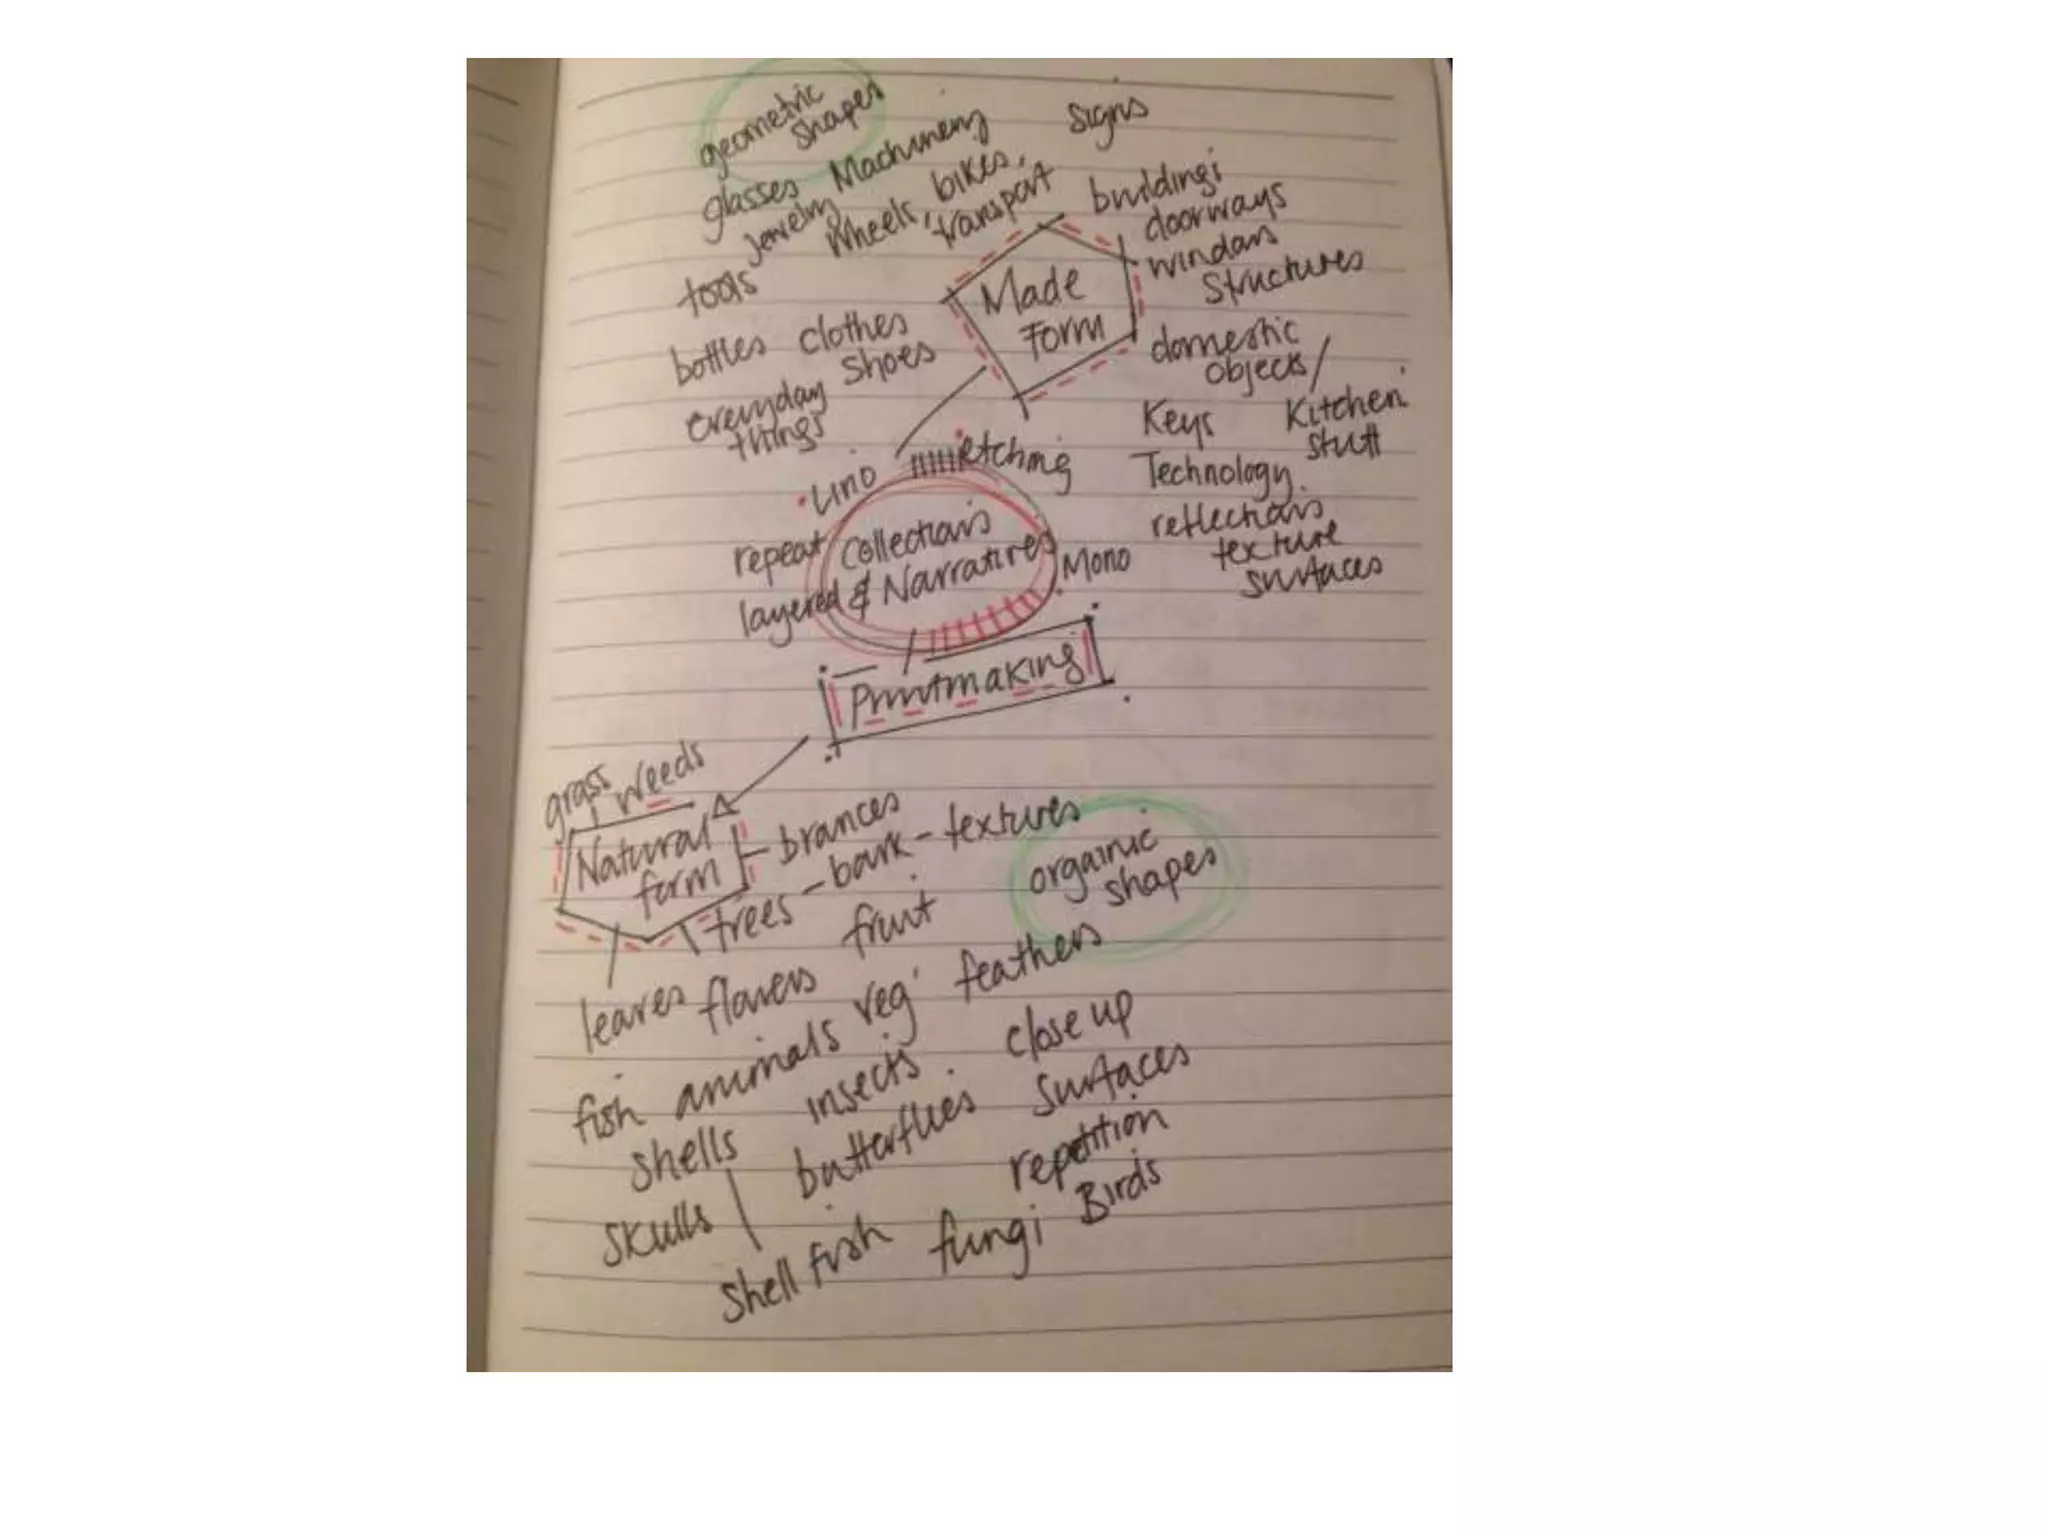 geometric
shapes
signs
glasses Machinery
jewelry
wheels, bikes,
transport
buildings
doorways
windows
structures
tools
Made
Form
bottles clothes
shoes
domestic
objects/
everyday
things
Keys Kitchen
stuff
Lino etching
Technology.
reflections
texture
surfaces
repeat
layered
Collections
& Narratives
Mono
Printmaking
grass weeds
Natural
form
brances
trees - bark - textures
organic
shapes
fruit
leaves flowers veg' feathers
fish animals insects. close up
surfaces
shells butterflies
repetition
skulls
shell fish fungi Birds